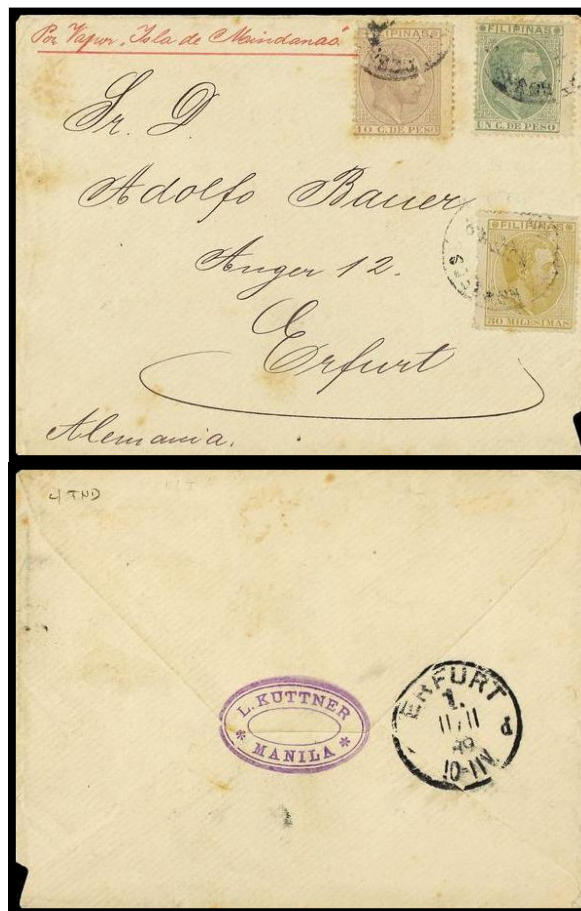 Por Vapor "Isla de Mindanao"
FILIPINAS
10 C. DE PESO
FILIPINAS
UN C. DE PESO
Sr. D.
Adolfo Bauer
Anger 12.
Erfurt
Alemania.
FILIPINAS
80 MILESIMAS
4 IND
L. KUTTNER
* MANILA *
ERFURT
1.
11/11
89
10-11